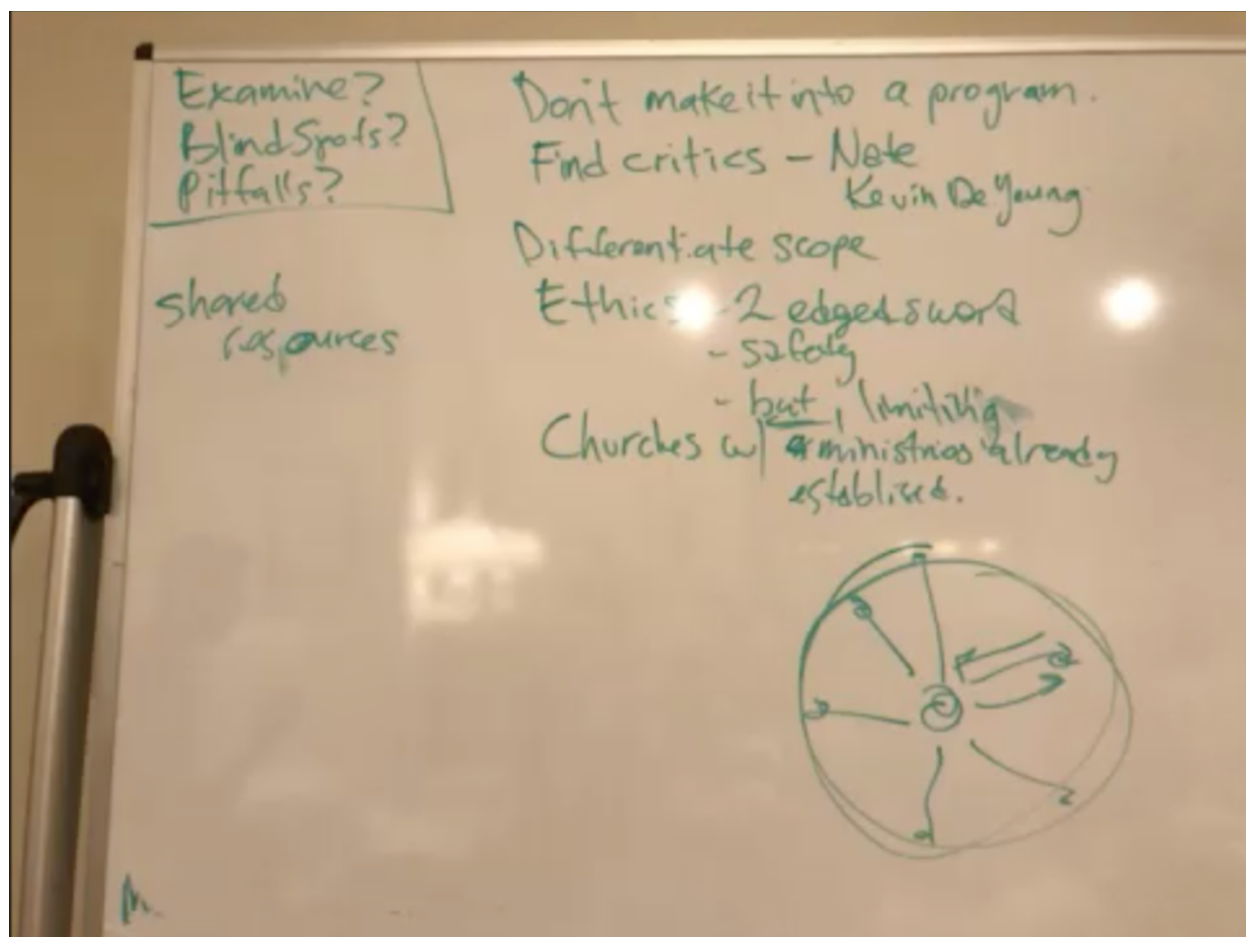 Examine?
Blind Spots?
Pitfalls?
shared
resources
Don't make it into a program.
Find critics - Note
Kevin DeYoung
Differentiate scope
Ethics - 2 edged sword
- safety
- but, limiting
Churches w/ ministries already
establised.